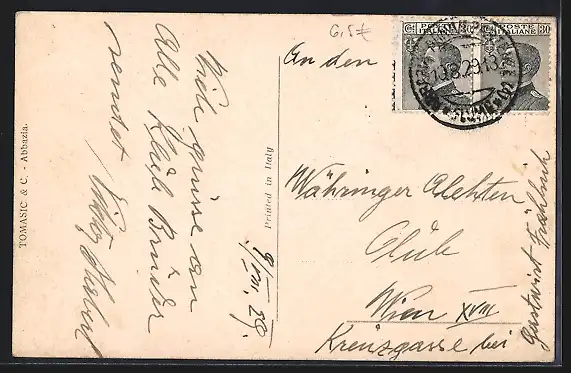 6,5€
POSTE ITALIANE 30
10.8.29.13
An den
Währinger Alehten
Club
Wien XVIII
Kreuzgasse bei
Gastwirt Fröhlich
Viele grüsse an
Alle Klub Brüder
sendet
9/VIII. 29.
Printed in Italy
TOMASIC & C. - Abbazia.